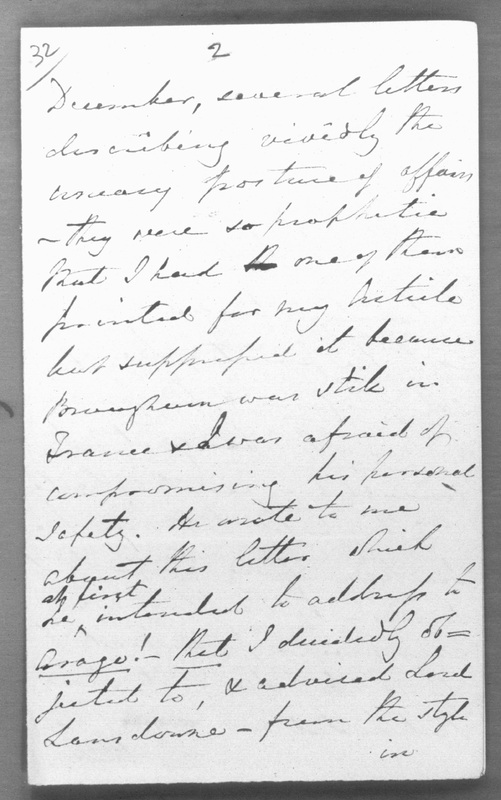 32/
2
December, several letters
describing vividly the
uneasy posture of affairs
- they were so prophetic
that I had one of them
printed for my Article
but suppressed it because
Brougham was still in
France & I was afraid of
compromising his personal
safety. He wrote to me
about this letter which
at first
he intended to address to
Arago! - that I decidedly ob=
jected to, & advised Lord
Lansdowne - from the style
in